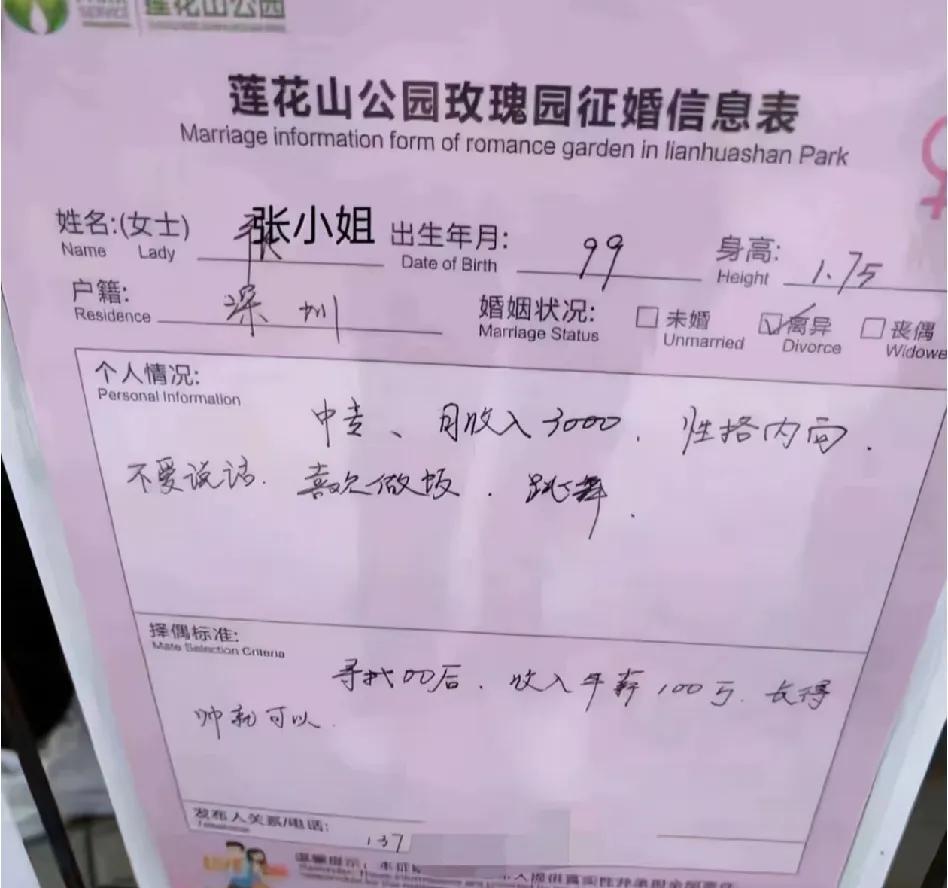 SERVICE 莲花山公园
莲花山公园玫瑰园征婚信息表
Marriage information form of romance garden in lianhuashan Park
姓名:(女士) 张小姐 出生年月: 99 身高: 1.75
Name Lady Date of Birth Height
户籍: 深圳 婚姻状况: 未婚 离异 丧偶
Residence Marriage Status Unmarried Divorce Widowe
个人情况:
Personal Information
中专、月收入3000.性格内向.
不爱说话.喜欢做饭.跳舞.
择偶标准:
Mate Selection Criteria
寻找00后.收入年薪100万.长得
帅就可以.
发布人关系/电话: 137
Telephone
温馨提示: 本征 本人提供真实性并承担全部责任